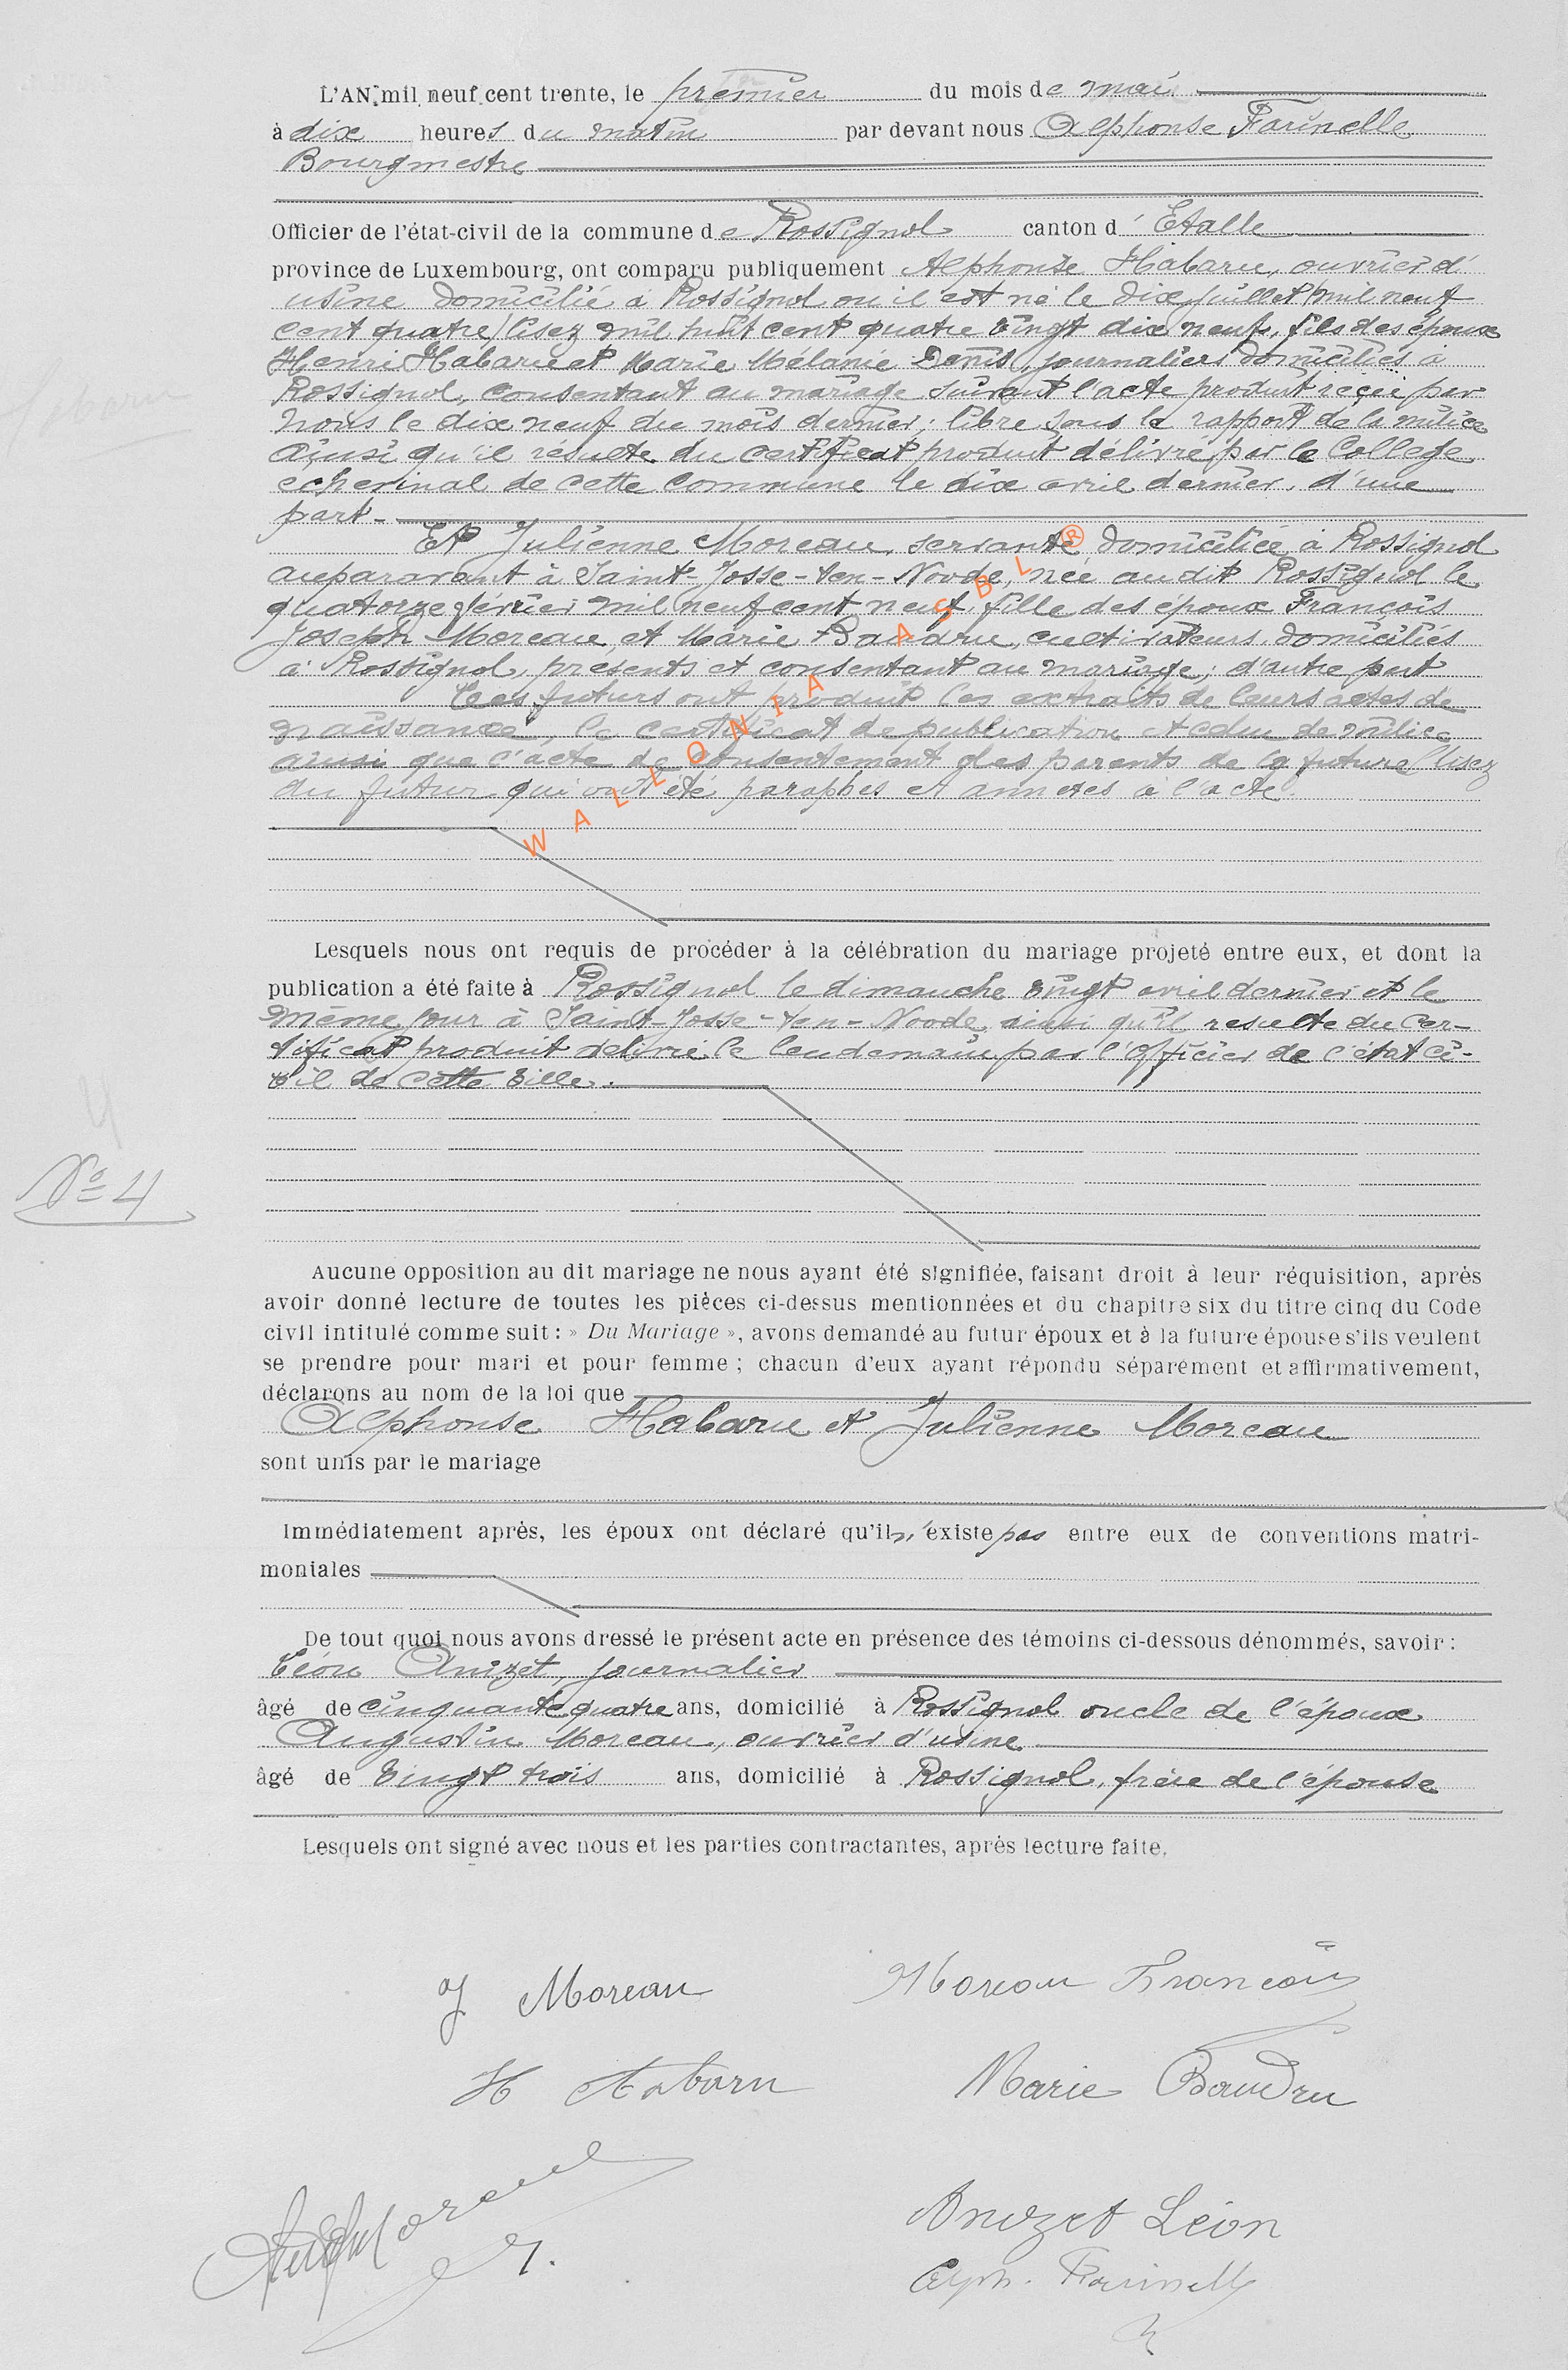 L'AN mil neuf cent trente, le premier du mois de mai
à dix heures du matin par devant nous Alphonse Farinelle
Bourgmestre
Officier de l'état-civil de la commune de Rossignol canton d' Etalle
province de Luxembourg, ont comparu publiquement Alphonse Habaru, ouvrier d'
usine domicilié à Rossignol ou il est né le dix juillet mil neuf
cent quatre (lisez mil huit cent quatre vingt dix neuf, fils des époux
Henri Habaru et Marie Mélanie Denis, journaliers domiciliés à
Rossignol, consentant au mariage suivant l'acte produit reçu par
nous le dix neuf du mois dernier; libre sous le rapport de la milice
ainsi qu'il résulte du certificat produit délivré par le Collège
echevinal de cette Commune le dix avril dernier, d'une
part -
Et Julienne Moreau, servante domiciliée à Rossignol
auparavant à Saint-Josse-ten-Noode, née audit Rossignol le
quatorze février mil neuf cent neuf, fille des époux François
Joseph Moreau et Marie Baudru, cultivateurs domiciliés
à Rossignol, présents et consentant au mariage; d'autre part
Les futurs ont produit les extraits de leurs actes de
naissance, le certificat de publication et celui de milice
ainsi que l'acte de consentement des parents de la future (lisez
du futur qui ont été paraphés et annexés à l'acte.
WALLONIA ASBL ®
Lesquels nous ont requis de procéder à la célébration du mariage projeté entre eux, et dont la
publication a été faite à Rossignol le dimanche vingt avril dernier et le
même jour à Saint-Josse-ten-Noode ainsi qu'il resulte du Cer-
tificat produit délivré le lendemain par l'Officier de l'état ci-
vil de cette ville.
Nº 4
Aucune opposition au dit mariage ne nous ayant été signifiée, faisant droit à leur réquisition, après
avoir donné lecture de toutes les pièces ci-dessus mentionnées et du chapitre six du titre cinq du Code
civil intitulé comme suit : » Du Mariage », avons demandé au futur époux et à la future épouse s'ils veulent
se prendre pour mari et pour femme ; chacun d'eux ayant répondu séparément et affirmativement,
déclarons au nom de la loi que
Alphonse Habaru et Julienne Moreau
sont unis par le mariage
Immédiatement après, les époux ont déclaré qu'il n'existe pas entre eux de conventions matri-
moniales
De tout quoi nous avons dressé le présent acte en présence des témoins ci-dessous dénommés, savoir :
Léon Anizet, journalier
âgé de cinquante quatre ans, domicilié à Rossignol oncle de l'époux
Augustin Moreau, ouvrier d'usine
âgé de vingt trois ans, domicilié à Rossignol, frère de l'épouse
Lesquels ont signé avec nous et les parties contractantes, après lecture faite.
J Moreau Moreau François
H Habaru Marie Baudru
Moreau
Anizet Léon
Alph. Farinelle